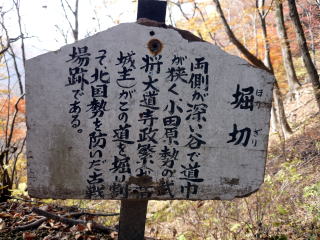 堀切
ほりぎり
両側が深い谷で道巾
が狭く小田原勢の武
将大道寺政繁が(
城主)がこの道を堀り割
って北国勢を防いだ古戦
場跡である。